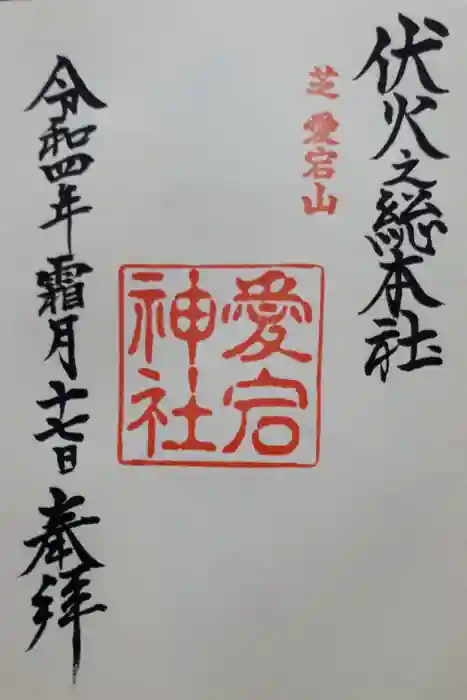 伏火之総本社
芝 愛宕山
愛宕
神社
令和四年霜月十七日 奉拝